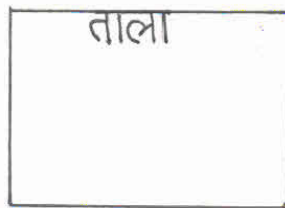 ताला